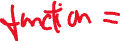 function =